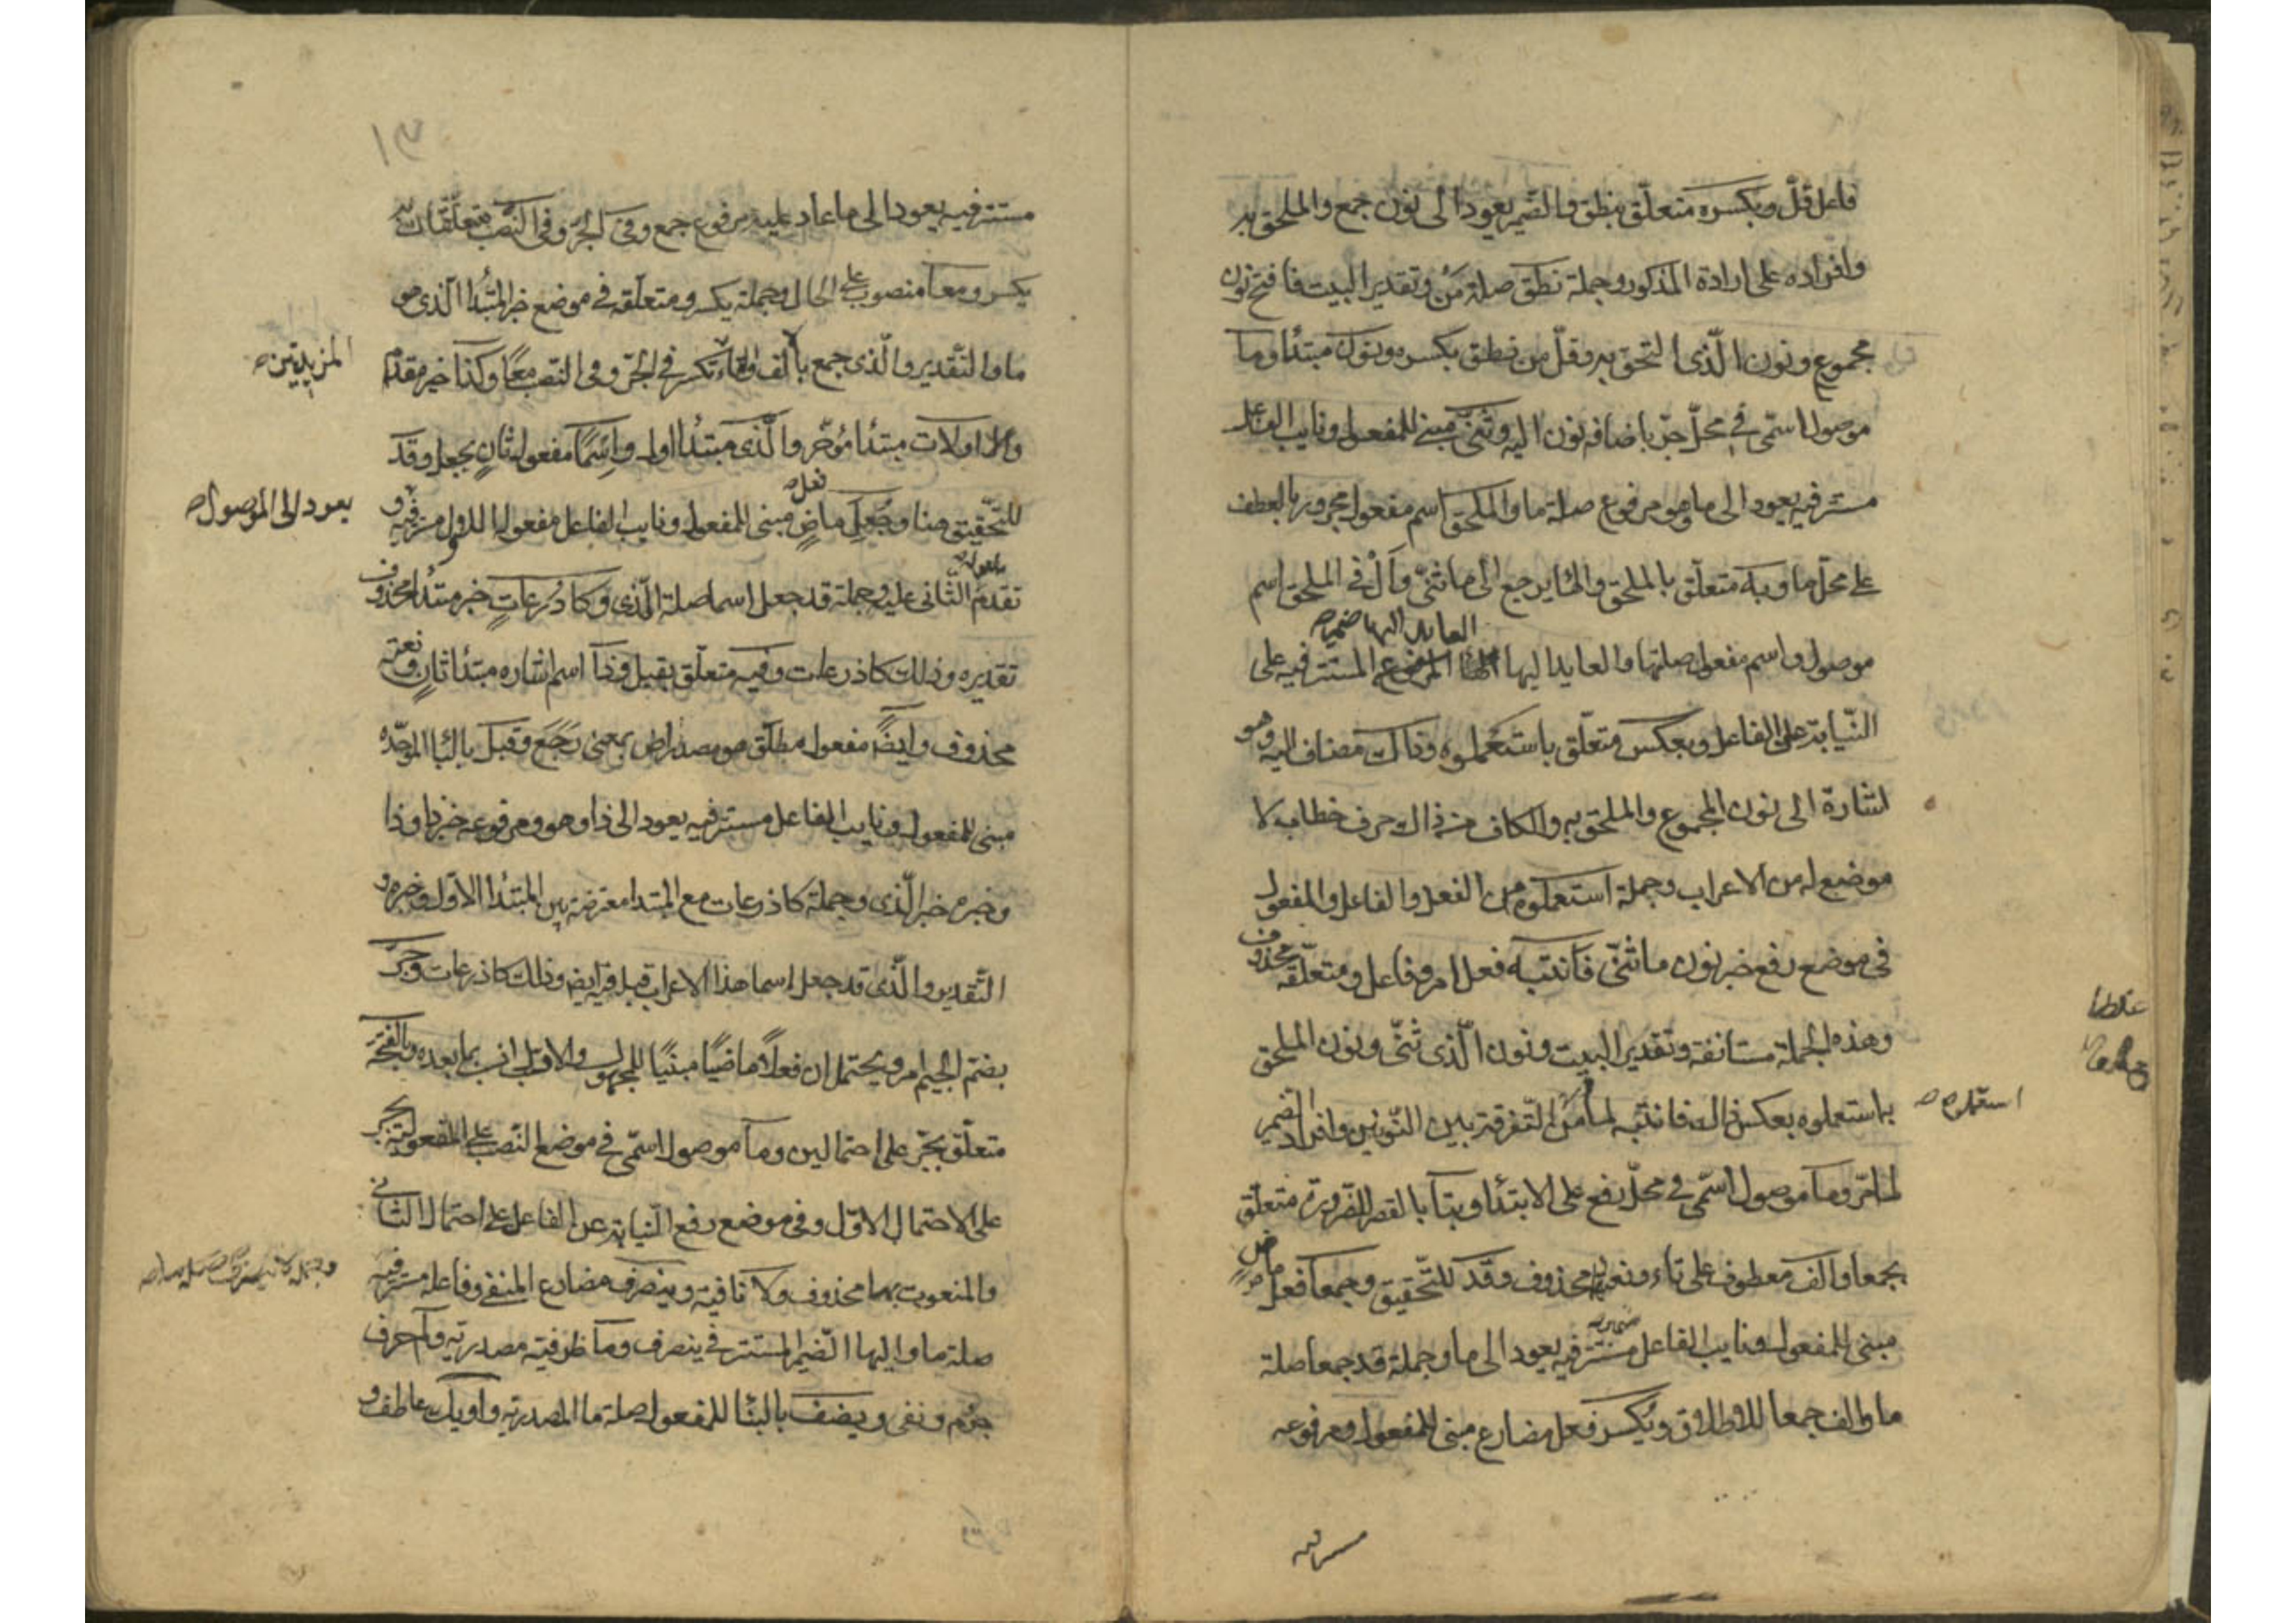 فاعل قلّ وبكسره متعلّق بنطق والضمير يعود الى نون جمع والملحق به
وافراده على ارادة المذكور وجملة نطق صلة من وتقدير البيت فافتح نون
مجموع ونون الّذى التحق به وقلّ من نطق بكسره ونون مبتدأ وما
موصول اسمّى في محلّ جرّ باضافة نون اليه وثنّى مبنى للمفعول ونايب الفاعل
مستتر فيه يعود الى ما وهو مرفوع صلة ما والملحق اسم مفعول مجرور بالعطف
على محلّ ما وبه متعلّق بالملحق والها يرجع الى ما ثنّى وأل في الملحق اسم
العايد اليها ضمير
موصول واسم مفعول صلتها والعايد اليها المستتر فيه على
النّيابة على الفاعل وبعكس متعلّق باستعملوه وذاك مضاف اليه وهو
اشارة الى نون المجموع والملحق به والكاف من ذاك حرف خطاب لا
موضع له من الاعراب وجملة استعملوه من الفعل والفاعل والمفعول
فى موضع رفع خبر نون ما ثنّى فانتبه فعل امر وفاعل ومتعلّقه محذوف
وهذه الجملة مستانفة وتقدير البيت ونون الّذى ثنّى ونون الملحق
به استعملوه بعكس ذاك فانتبه لما من التّفرقة بين النّونين وافراد الضمير
استعملوه
لما مرّ وما موصول اسمّى في محلّ رفع على الابتدا وبتا بالقصر للضّرورة متعلّق
بجمعا والف معطوف على تاء ونعتهما محذوف وقد للتّحقيق وجمعا فعل ماض
مبنى للمفعول ونايب الفاعل مستتر فيه يعود الى ما وجملة قد جمعا صلة
ما والف جمعا للاطلاق ويكسر فعل مضارع مبنى للمفعول ومرفوعه
مستتر فيه
١٣
مستتر فيه يعود الى ما عاد عليه مرفوع جمع وفى الجرّ وفى النّصب متعلّقان
يكسر ومعا منصوب على الحال وجملة يكسر ومتعلّقه في موضع خبر المبتدأ الّذى هو
ما والتّقدير والّذى جمع بالف وتاء تكسر في الجرّ وفى النّصب معًا وكذا خبر مقدّم
المزيدتين
والا اولات مبتدأ مؤخّر والّذى مبتدأ اول واسمًا مفعول ثانٍ بجعل وقد
للتّحقيق هنا وجُعِل فعل ماضٍ مبنى للمفعول ونايب الفاعل مفعوله الاول مستتر فيه و
يعود الى الموصول
تقدم الثّانى عليه وجملة قد جعل اسما صلة الّذى وكاذرعاتٍ خبر مبتدأ محذوف
تقديره وذلك كاذرعات وفيه متعلّق بقبل وذا اسم اشاره مبتدأ ثانٍ ونعته
محذوف وايضًا مفعول مطلّق هو مصدر اض بمعنى رَجَعَ وقبل بالبا الموحّده
مبنى للمفعول ونايب الفاعل مستتر فيه يعود الى ذا وهو ومرفوعه خبر ذا وذا
وخبره خبر الّذى وجملة كاذرعات مع المبتدا معترضة بين المبتدأ الاوّل وخبره و
التّقدير والّذى قد جعل اسما هذا الاعراب قبل فيه ايضا وذلك كاذرعات وجرّ
بضم الجيم امر ويحتمل ان فعلًا ماضيًا مبنيًا للمجهول والاوّل انسب بما بعده وبالفتحة
متعلّق بجرّ على احتمالين وما موصول اسمّى في موضع النّصب على المفعولية بجر
على الاحتمال الاوّل وفى موضع رفع النّيابة عن الفاعل على احتمال الثّانى
والمنعوت بهما محذوف ولا نافية وينصرف مضارع المنفى وفاعله مستتر فيه
وجملة لا ينصرف صلة ما
صلة ما واليها الضّمير المستتر في ينصرف وما ظرفيّة مصدريّة ولم حرف
جزم ونفى ويضف بالبنا للمفعول صلة ما المصدريّة وأو يك عاطف و